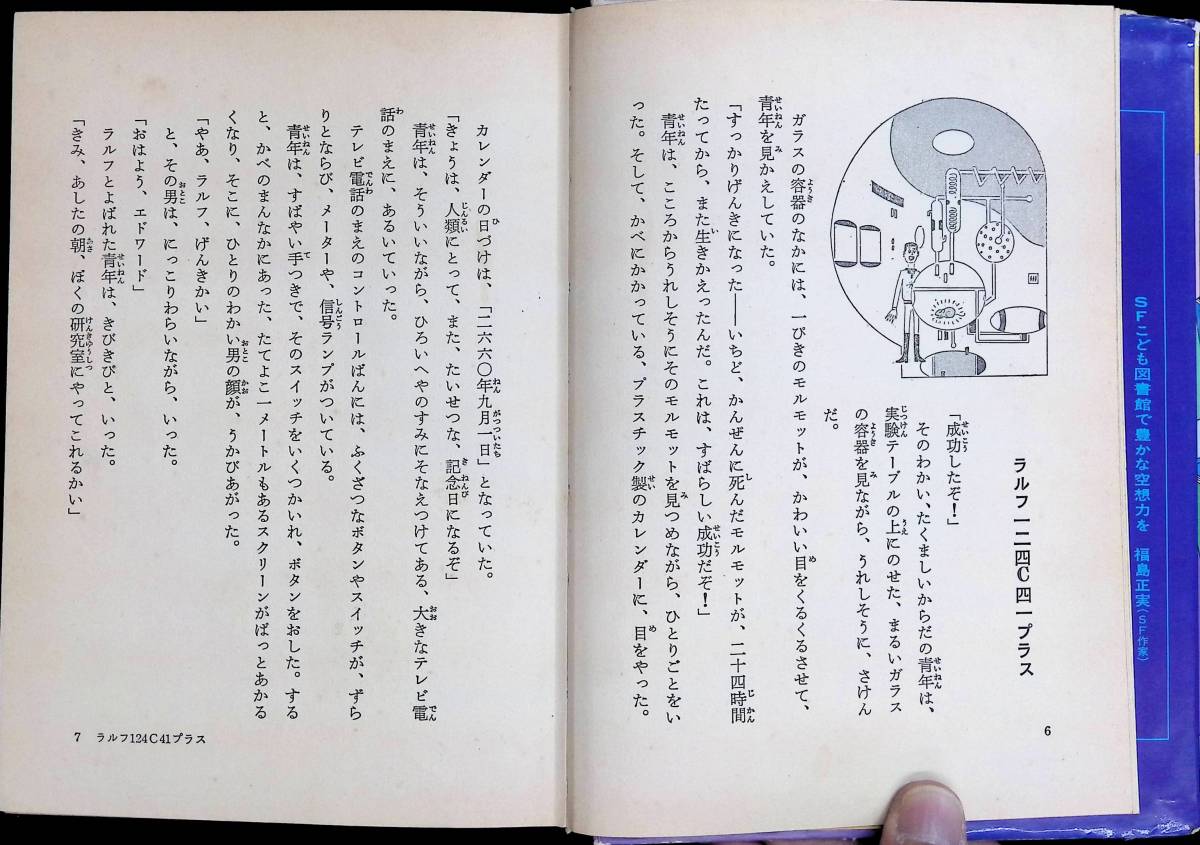 ラルフ一二四C四一プラス
「成功したぞ!」
そのわかい、たくましいからだの青年は、
実験テーブルの上にのせた、まるいガラス
の容器を見ながら、うれしそうに、さけん
だ。
ガラスの容器のなかには、一ぴきのモルモットが、かわいい目をくるくるさせて、
青年を見かえしていた。
「すっかりげんきになった――いちど、かんぜんに死んだモルモットが、二十四時間
たってから、また生きかえったんだ。これは、すばらしい成功だぞ!」
青年は、こころからうれしそうにそのモルモットを見つめながら、ひとりごとをい
った。そして、かべにかかっている、プラスチック製のカレンダーに、目をやった。
6
カレンダーの日づけは、「二六六〇年九月一日」となっていた。
「きょうは、人類にとって、また、たいせつな、記念日になるぞ」
青年は、そういいながら、ひろいへやのすみにそなえつけてある、大きなテレビ電
話のまえに、あるいていった。
テレビ電話のまえのコントロールばんには、ふくざつなボタンやスイッチが、ずら
りとならび、メーターや、信号ランプがついている。
青年は、すばやい手つきで、そのスイッチをいくつかいれ、ボタンをおした。する
と、かべのまんなかにあった、たてよこ一メートルもあるスクリーンがぱっとあかる
くなり、そこに、ひとりのわかい男の顔が、うかびあがった。
「やあ、ラルフ、げんきかい」
と、その男は、にっこりわらいながら、いった。
「おはよう、エドワード」
ラルフとよばれた青年は、きびきびと、いった。
「きみ、あしたの朝、ぼくの研究室にやってこれるかい」
7 ラルフ124C41プラス
SFこども図書館で豊かな空想力を 福島正実(SF作家)